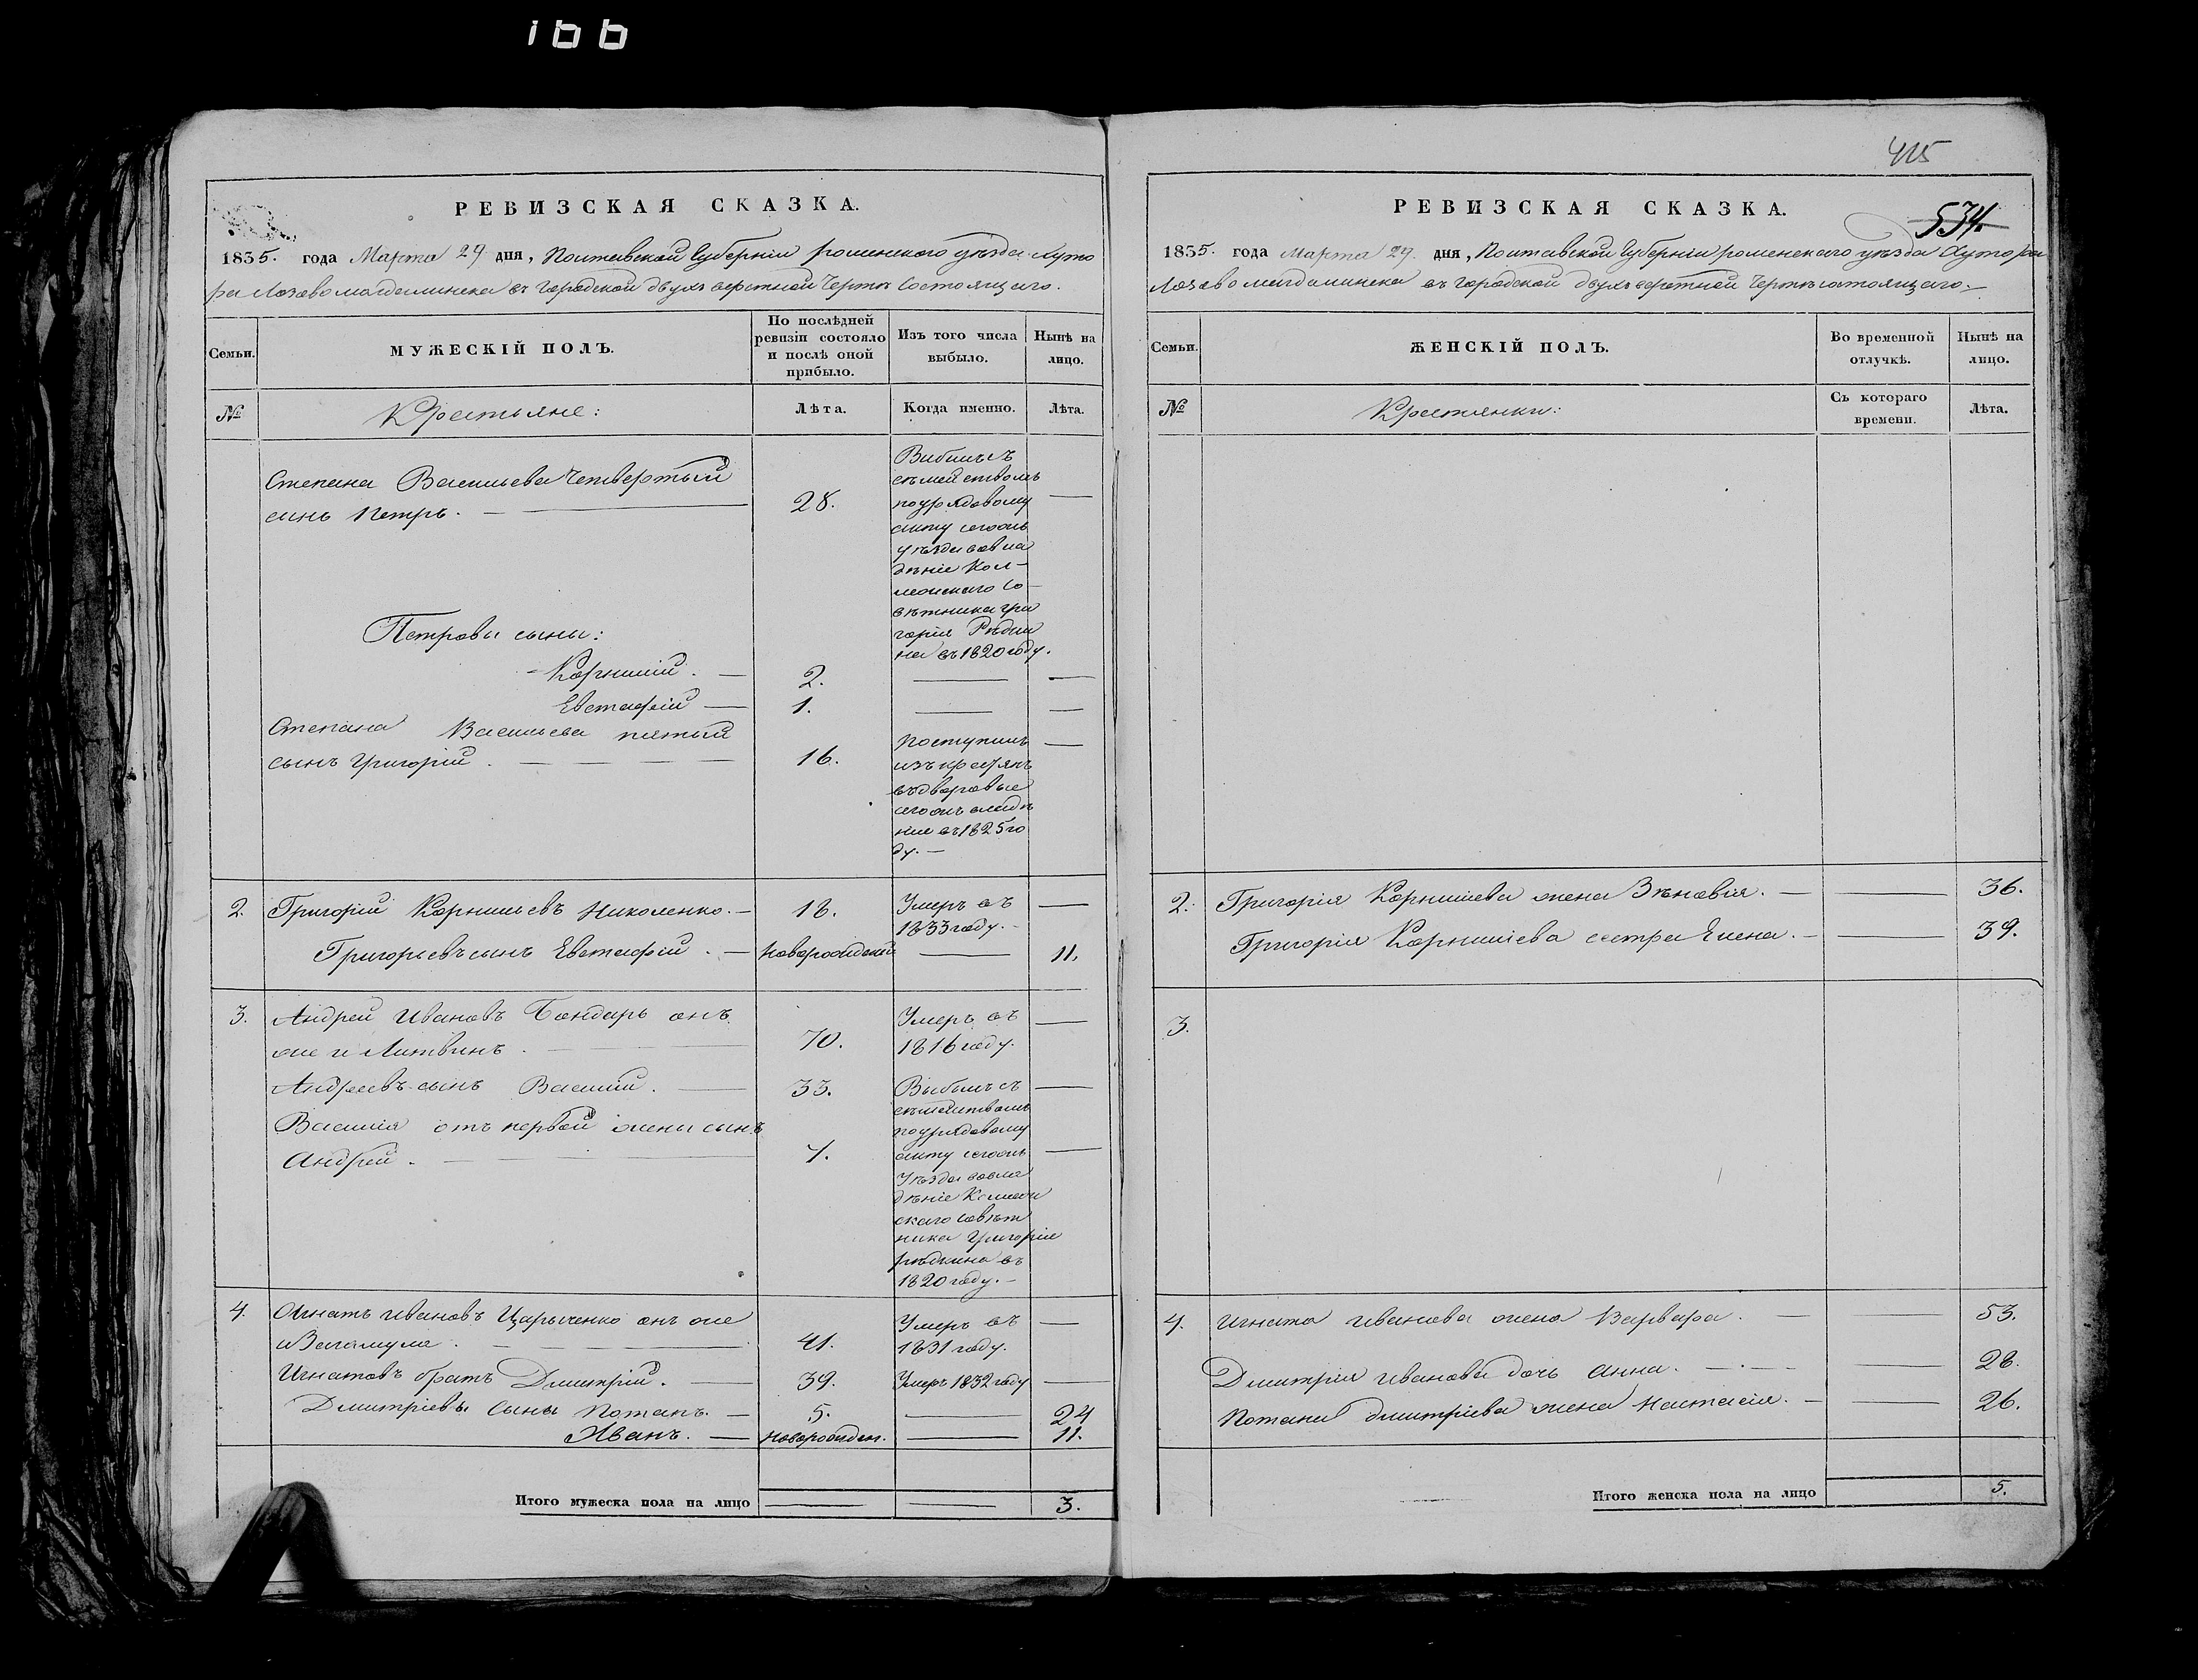 166
РЕВИЗСКАЯ СКАЗКА.
1835. года Марта 29 дня, Полтавской Губерніи роменского уѣзда Хуто
ра Лозовомагдалинска въ Городской двухъ верстной Чертѣ Состоящаго.
Семьи.
МУЖЕСКІЙ ПОЛЪ.
По послѣдней
ревизіи состояло
и послѣ оной
прибыло.
Изъ того числа
выбыло.
Нынѣ на
лицо.
№
Крестьяне:
Лѣта.
Когда именно.
Лѣта.
Степана Васильева Четвертый
сынъ Петръ. —
28.
съ
семействомъ
по урядовому
акту
уѣзда во вла
дѣніе Кол-
лежскаго Со-
вѣтника Гри
горія
на въ 1820 году.
Петрова сыны:
Корнилій. —
2.
Евстафій —
1.
Степана Васильева пятый
сынъ Григорій. —
16.
Поступилъ
изъ крестянъ
въ дворовые
владѣ
нія въ 1825 го
ду. —
2. Григорій Корнильевъ Николенко. —
18.
Умеръ въ
1833 году. -
Григорьевъ сынъ Евстафій. —
Новорожденый
11.
3. Андрей Ивановъ Бондарь онъ
же и Литвинъ. —
70.
Умеръ въ
1816 году.
Андреевъ сынъ Василій. —
33.
Выбылъ съ
семействомъ
по урядовому
акту
Уѣзда во вла
дѣніе Коллеж
скаго Совѣт
ника Григорія
въ
1820 году. —
Василія отъ первой жены сынъ
Андрей. —
7.
4. Игнатъ Ивановъ Царыченко онъ же
41.
Умеръ въ
1831 году.
Игнатовъ братъ Дмитрій. —
39.
Умеръ 1832 году
Дмитріевы Сыны Потапъ. —
5.
24
Иванъ. —
Новорожден.
11.
Итого мужеска пола на лицо
3.
415
534.
РЕВИЗСКАЯ СКАЗКА.
1835. года Марта 29. дня, Полтавской Губерніи роменскаго уѣзда Хутора
Лозовомагдалинска въ Городской двухъ верстной Чертѣ состоящаго. —
Семьи.
ЖЕНСКІЙ ПОЛЪ.
Во временной
отлучкѣ.
Нынѣ на
лицо.
№
Крестянки:
Съ котораго
времени.
Лѣта.
2. Григорія Корниліева жена Зѣновія. —
36.
Григорія Корниліева сестра Елена. —
39.
3.
4. Игната Иванова жена Варвара. —
53.
Дмитрія Иванова дочь Анна. —
28.
Потапа Дмитріева жена Настасія. —
26.
Итого женска пола на лицо
5.